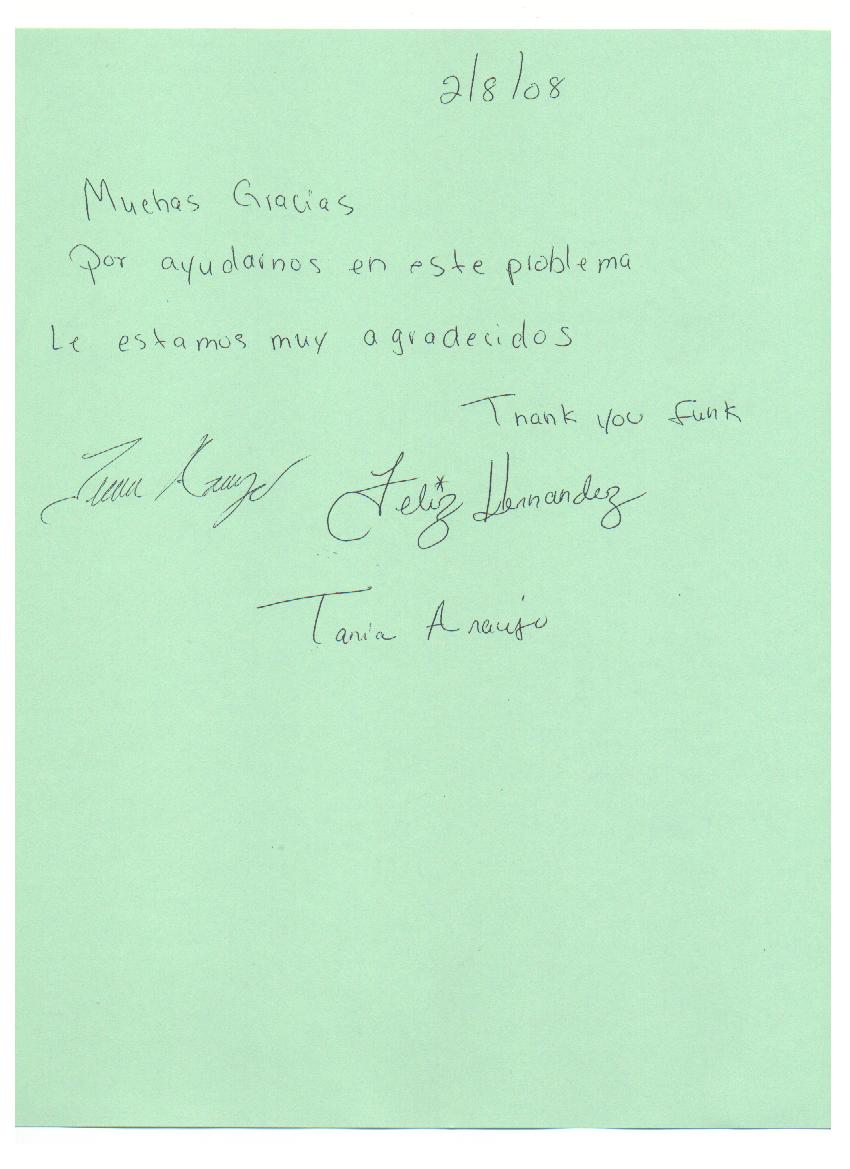 2/8/08
Muchas Gracias
Por ayudarnos en este problema
Le estamos muy agradecidos
Thank you Funk
Araujo Feliz Hernandez
Tania Araujo